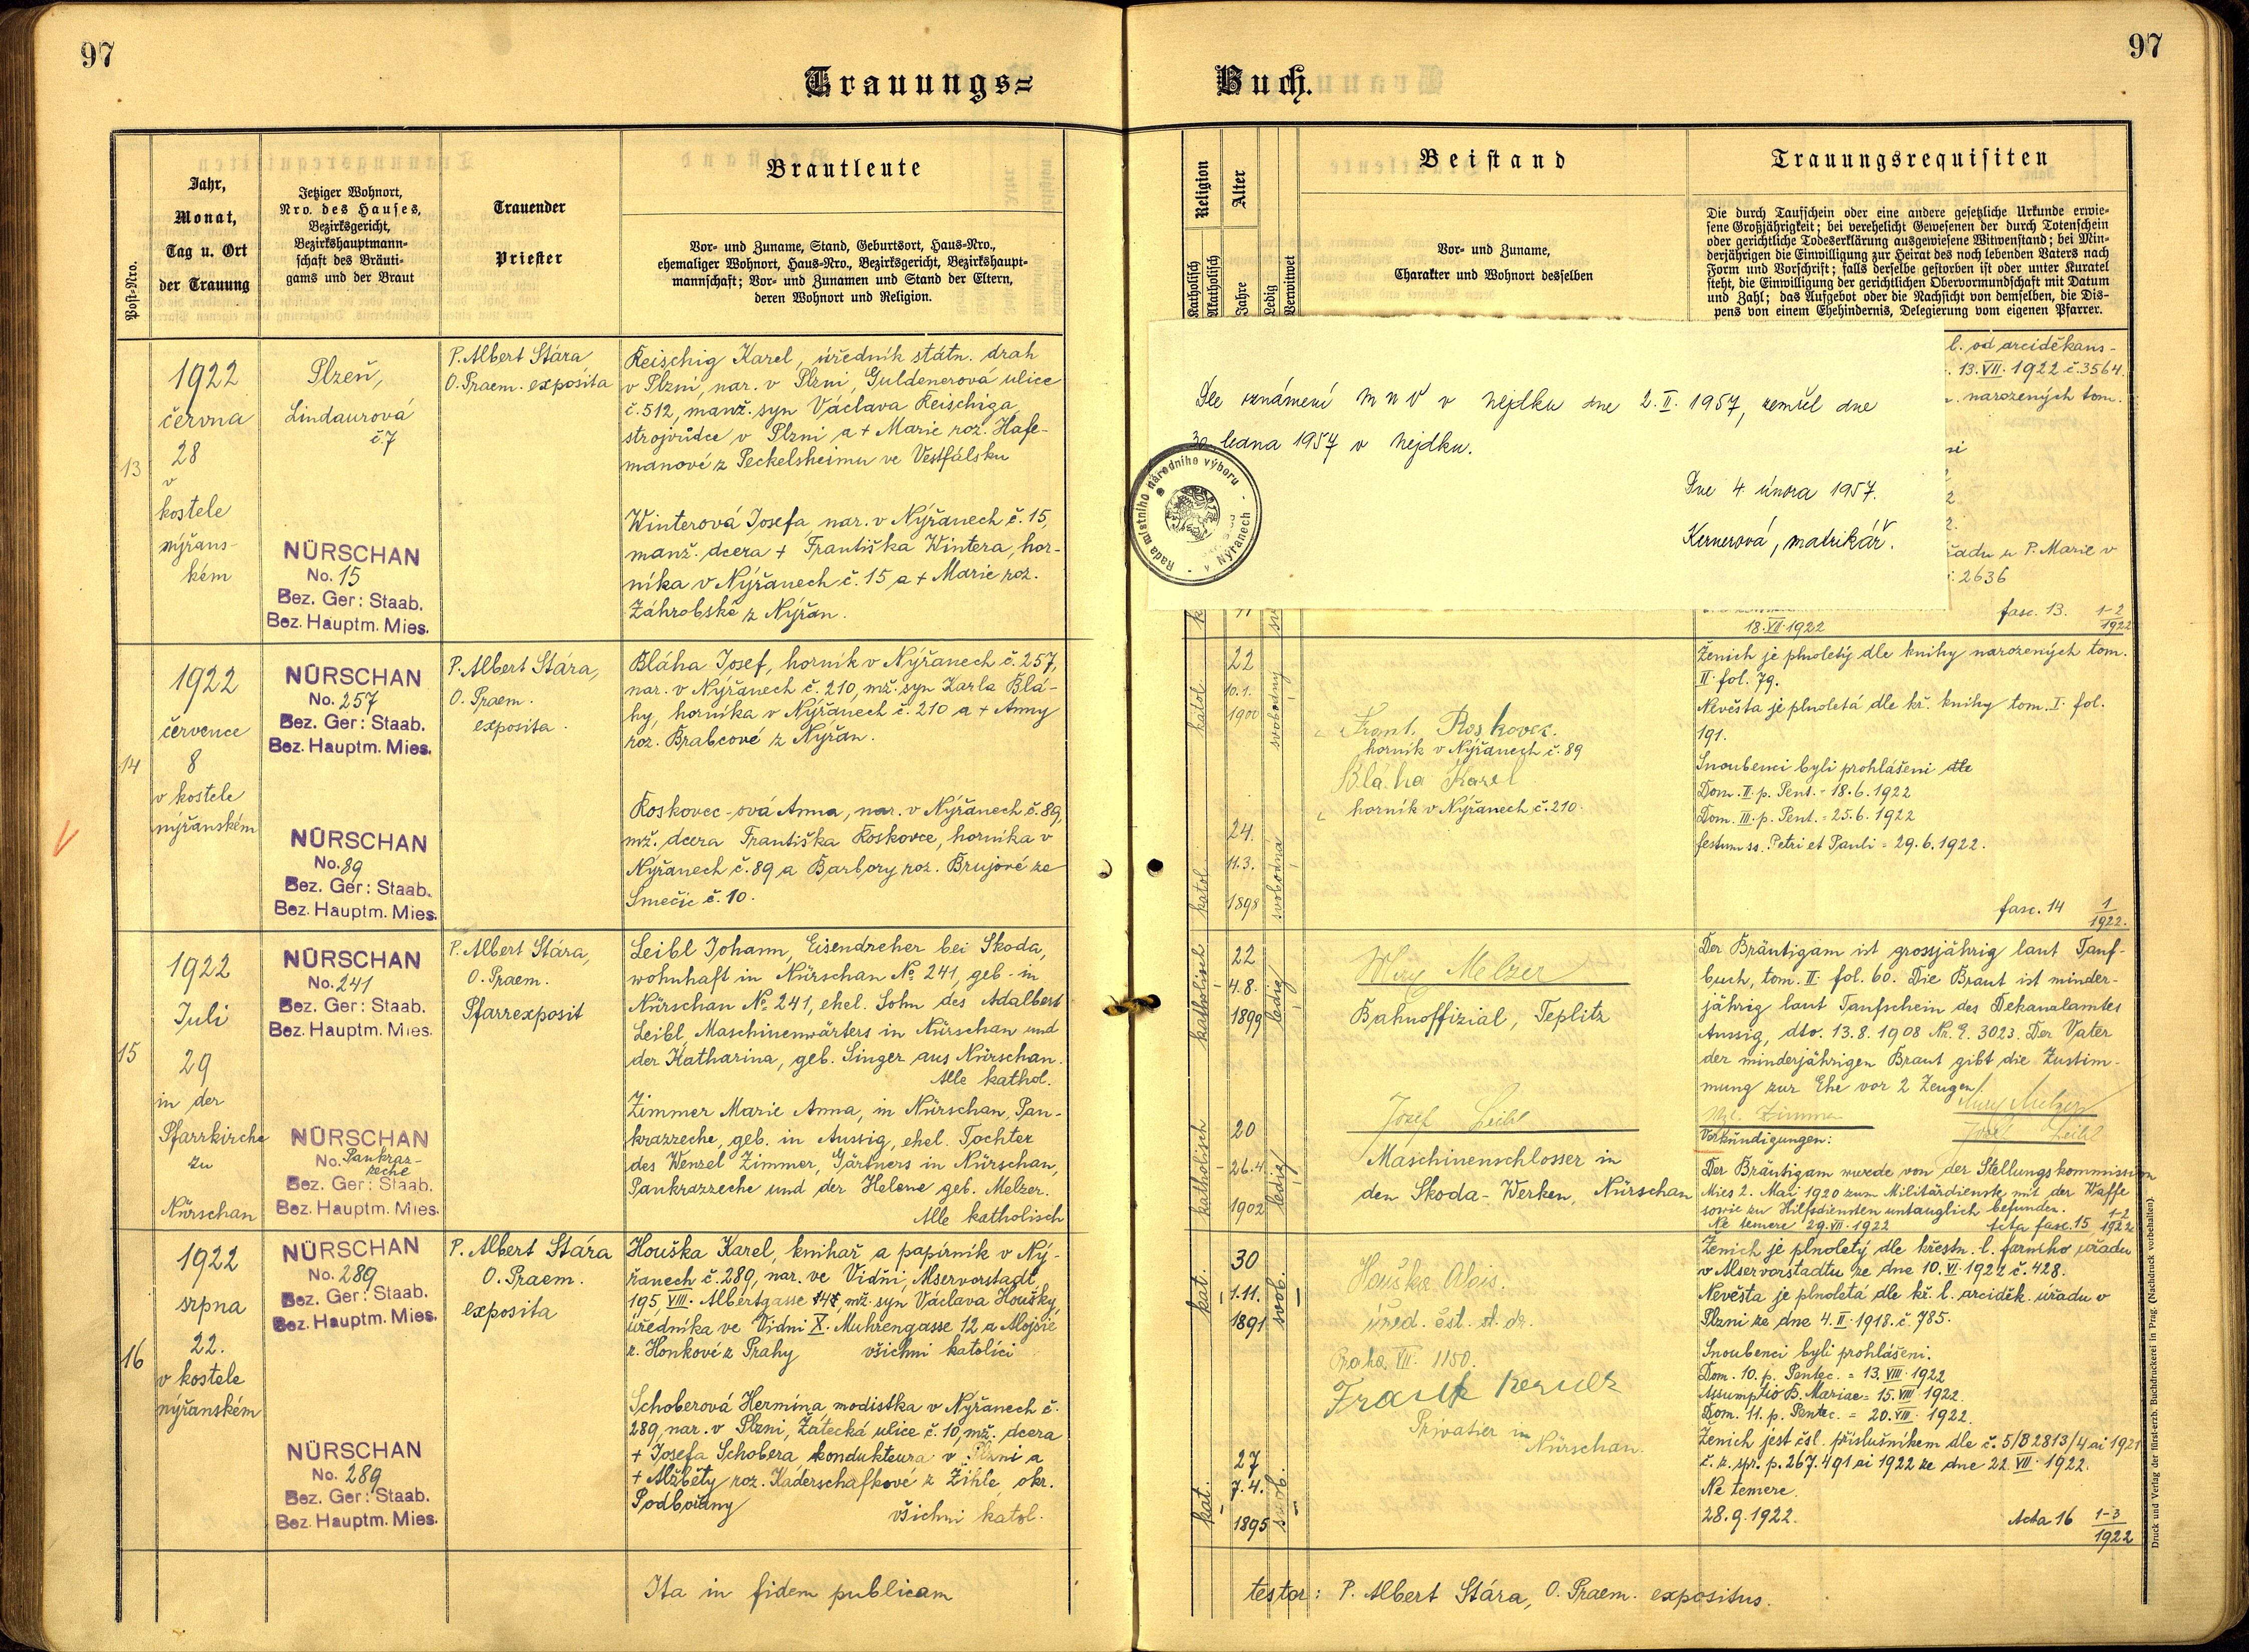 97
97
Trauungs=
Buch.
Post-Nro.
Jahr,
Monat,
Tag u. Ort
der Trauung
Jetziger Wohnort,
Nro. des Hauses,
Bezirksgericht,
Bezirkshauptmann=
schaft des Bräuti=
gams und der Braut
Trauender
Priester
Brautleute
Vor= und Zuname, Stand, Geburtsort, Haus=Nro.,
ehemaliger Wohnort, Haus=Nro., Bezirksgericht, Bezirkshaupt=
mannschaft; Vor= und Zunamen und Stand der Eltern,
deren Wohnort und Religion.
Religion
Katholisch
Akatholisch
Alter
Jahre
Ledig
Verwitwet
Beistand
Vor= und Zuname,
Charakter und Wohnort desselben
Trauungsrequisiten
Die durch Taufschein oder eine andere gesetzliche Urkunde erwie=
sene Großjährigkeit; bei verehelicht Gewesenen der durch Totenschein
oder gerichtliche Todeserklärung ausgewiesene Witwenstand; bei Min=
derjährigen die Einwilligung zur Heirat des noch lebenden Vaters nach
Form und Vorschrift; falls derselbe gestorben ist oder unter Kuratel
steht, die Einwilligung der gerichtlichen Obervormundschaft mit Datum
und Zahl; das Aufgebot oder die Nachsicht von demselben, die Dis=
pens von einem Ehehindernis, Delegierung vom eigenen Pfarrer.
13
1922
června
28
v
kostele
nýřans-
kém
Plzeň,
Lindaurová
č. 7
NÜRSCHAN
No. 15
Bez. Ger: Staab.
Bez. Hauptm. Mies.
P. Albert Stára
O. Praem. exposita
Reischig Karel, úředník státn. drah
v Plzni, nar. v Plzni, Guldenerová ulice
č. 512, manž. syn Václava Reischiga,
strojvůdce v Plzni a + Marie roz. Hafe-
manové z Peckelsheimu ve Vestfálsku
Winterová Josefa, nar. v Nýřanech č. 15,
manž. dcera + Františka Wintera, hor-
níka v Nýřanech č. 15 a + Marie roz.
Záhrobské z Nýřan.
Dle oznámení MNV v Nejdku dne 2. II. 1957, zemřel dne
30. ledna 1957 v Nejdku.
Dne 4. února 1957.
Kernerová, matrikář.
Rada místního národního výboru
v Nýřanech
l. od arciděkans-
13. VII. 1922 č. 3564.
narozených tom.
řadu u P. Marie v
2636
18. VII. 1922
fasc. 13. 1-2
1922
14
1922
července
8
v kostele
nýřanském
NÜRSCHAN
No. 257
Bez. Ger: Staab.
Bez. Hauptm. Mies.
NÜRSCHAN
No. 89
Bez. Ger: Staab.
Bez. Hauptm. Mies.
P. Albert Stára,
O. Praem.
exposita.
Bláha Josef, horník v Nýřanech č. 257,
nar. v Nýřanech č. 210, mž. syn Karla Blá-
hy, horníka v Nýřanech č. 210 a + Anny
roz. Brabcové z Nýřan.
Roskovec-ová Anna, nar. v Nýřanech č. 89,
mž. dcera Františka Roskovce, horníka v
Nýřanech č. 89 a Barbory roz. Brujové ze
Smečic č. 10.
katol
22
10.1.
1900
svobodný
katol
24.
11.3.
1898
svobodná
Frant. Roskovec.
horník v Nýřanech č. 89
Bláha Karel
horník v Nýřanech č. 210.
Ženich je plnoletý dle knihy narozených tom.
II. fol. 79.
Nevěsta je plnoletá dle kř. knihy tom. I. fol.
191.
Snoubenci byli prohlášeni dle
Dom. II. p. Pent. = 18.6.1922
Dom. III. p. Pent. = 25.6.1922
festum ss. Petri et Pauli = 29.6.1922.
fasc. 14 1
1922.
15
1922
Juli
29
in der
Pfarrkirche
zu
Nürschan
NÜRSCHAN
No. 241
Bez. Ger: Staab.
Bez. Hauptm. Mies.
NÜRSCHAN
No. Pankraz-
zeche
Bez. Ger: Staab.
Bez. Hauptm. Mies.
P. Albert Stára,
O. Praem.
Pfarrexposit
Leibl Johann, Eisendreher bei Skoda,
wohnhaft in Nürschan No 241, geb. in
Nürschan No 241, ehel. Sohn des Adalbert
Leibl, Maschinenwärters in Nürschan und
der Katharina, geb. Singer aus Nürschan.
Alle kathol.
Zimmer Marie Anna, in Nürschan, Pan-
krazzeche, geb. in Aussig, ehel. Tochter
des Wenzel Zimmer, Gärtners in Nürschan,
Pankrazzeche und der Helene geb. Melzer.
Alle katholisch
katholisch
22
4.8.
1899
ledig
katholisch
20
26.4
1902
ledig
Melzer
Bahnoffizial, Teplitz
Josef Leibl
Maschinenschlosser in
den Skoda-Werken, Nürschan
Der Bräutigam ist grossjährig laut Tauf-
buch, tom. II. fol. 60. Die Braut ist minder-
jährig laut Taufschein des Dekanalamtes
Aussig, dto. 13.8.1908 Nr. E. 3023. Der Vater
der minderjährigen Braut gibt die Zustim-
mung zur Ehe vor 2 Zeugen
Melzer
Zimmer
Josef Leibl
Verkündigungen:
Der Bräutigam wurde von der Stellungskommission
Mies 2. Mai 1920 zum Militärdienste mit der Waffe
sowie zu Hilfsdiensten untauglich befunden.
Ne temere 29. VII. 1922 fasc. 15 1-2
1922
16
1922
srpna
22.
v kostele
nýřanském
NÜRSCHAN
No. 289
Bez. Ger: Staab.
Bez. Hauptm. Mies.
NÜRSCHAN
No. 289
Bez. Ger: Staab.
Bez. Hauptm. Mies.
P. Albert Stára
O. Praem.
exposita
Houška Karel, knihař a papírník v Ný-
řanech č. 289, nar. ve Vídni, Alservorstadt,
195, VIII. Albertgasse, mž. syn Václava Houšky,
úředníka ve Vídni X. Muhrengasse 12 a Aloisie
r. Honkové z Prahy všichni katolíci
Schoberová Hermína modistka v Nýřanech č.
289, nar. v Plzni, Žatecká ulice č. 10, mž. dcera
+ Josefa Schobera kondukteura v Plzni a
+ Alžběty roz. Kaderschafkové z Žihle, okr.
Podbořany všichni katol.
kat.
30
1.11.
1891
svob.
kat.
27
7.4.
1895
svob.
Houška Alois.
úřed. čsl. st. dr.
Praha VII. 1150.
Privatier in
Nürschan.
Ženich je plnoletý dle křestn. l. farního úřadu
v Alservorstadtu ze dne 10. VI. 1922 č. 428.
Nevěsta je plnoletá dle kř. l. arciděk. úřadu v
Plzni ze dne 4. II. 1918. č. 785.
Snoubenci byli prohlášeni.
Dom. 10. p. Pentec. = 13. VIII. 1922
Assumptio B. Mariae = 15. VIII. 1922.
Dom. 11. p. Pentec. = 20. VIII. 1922.
Ženich jest čsl. příslušníkem dle č. 5/B 2813/4 ai 1921
č. z. spr. p. 267.491 ai 1922 ze dne 22. VII. 1922.
Ne temere.
28.9.1922. Acta 16 1-3
1922
Ita in fidem publicam
testor: P. Albert Stára, O. Praem. expositus.
Druck und Verlag der fürst-erzb. Buchdruckerei in Prag. (Nachdruck vorbehalten).